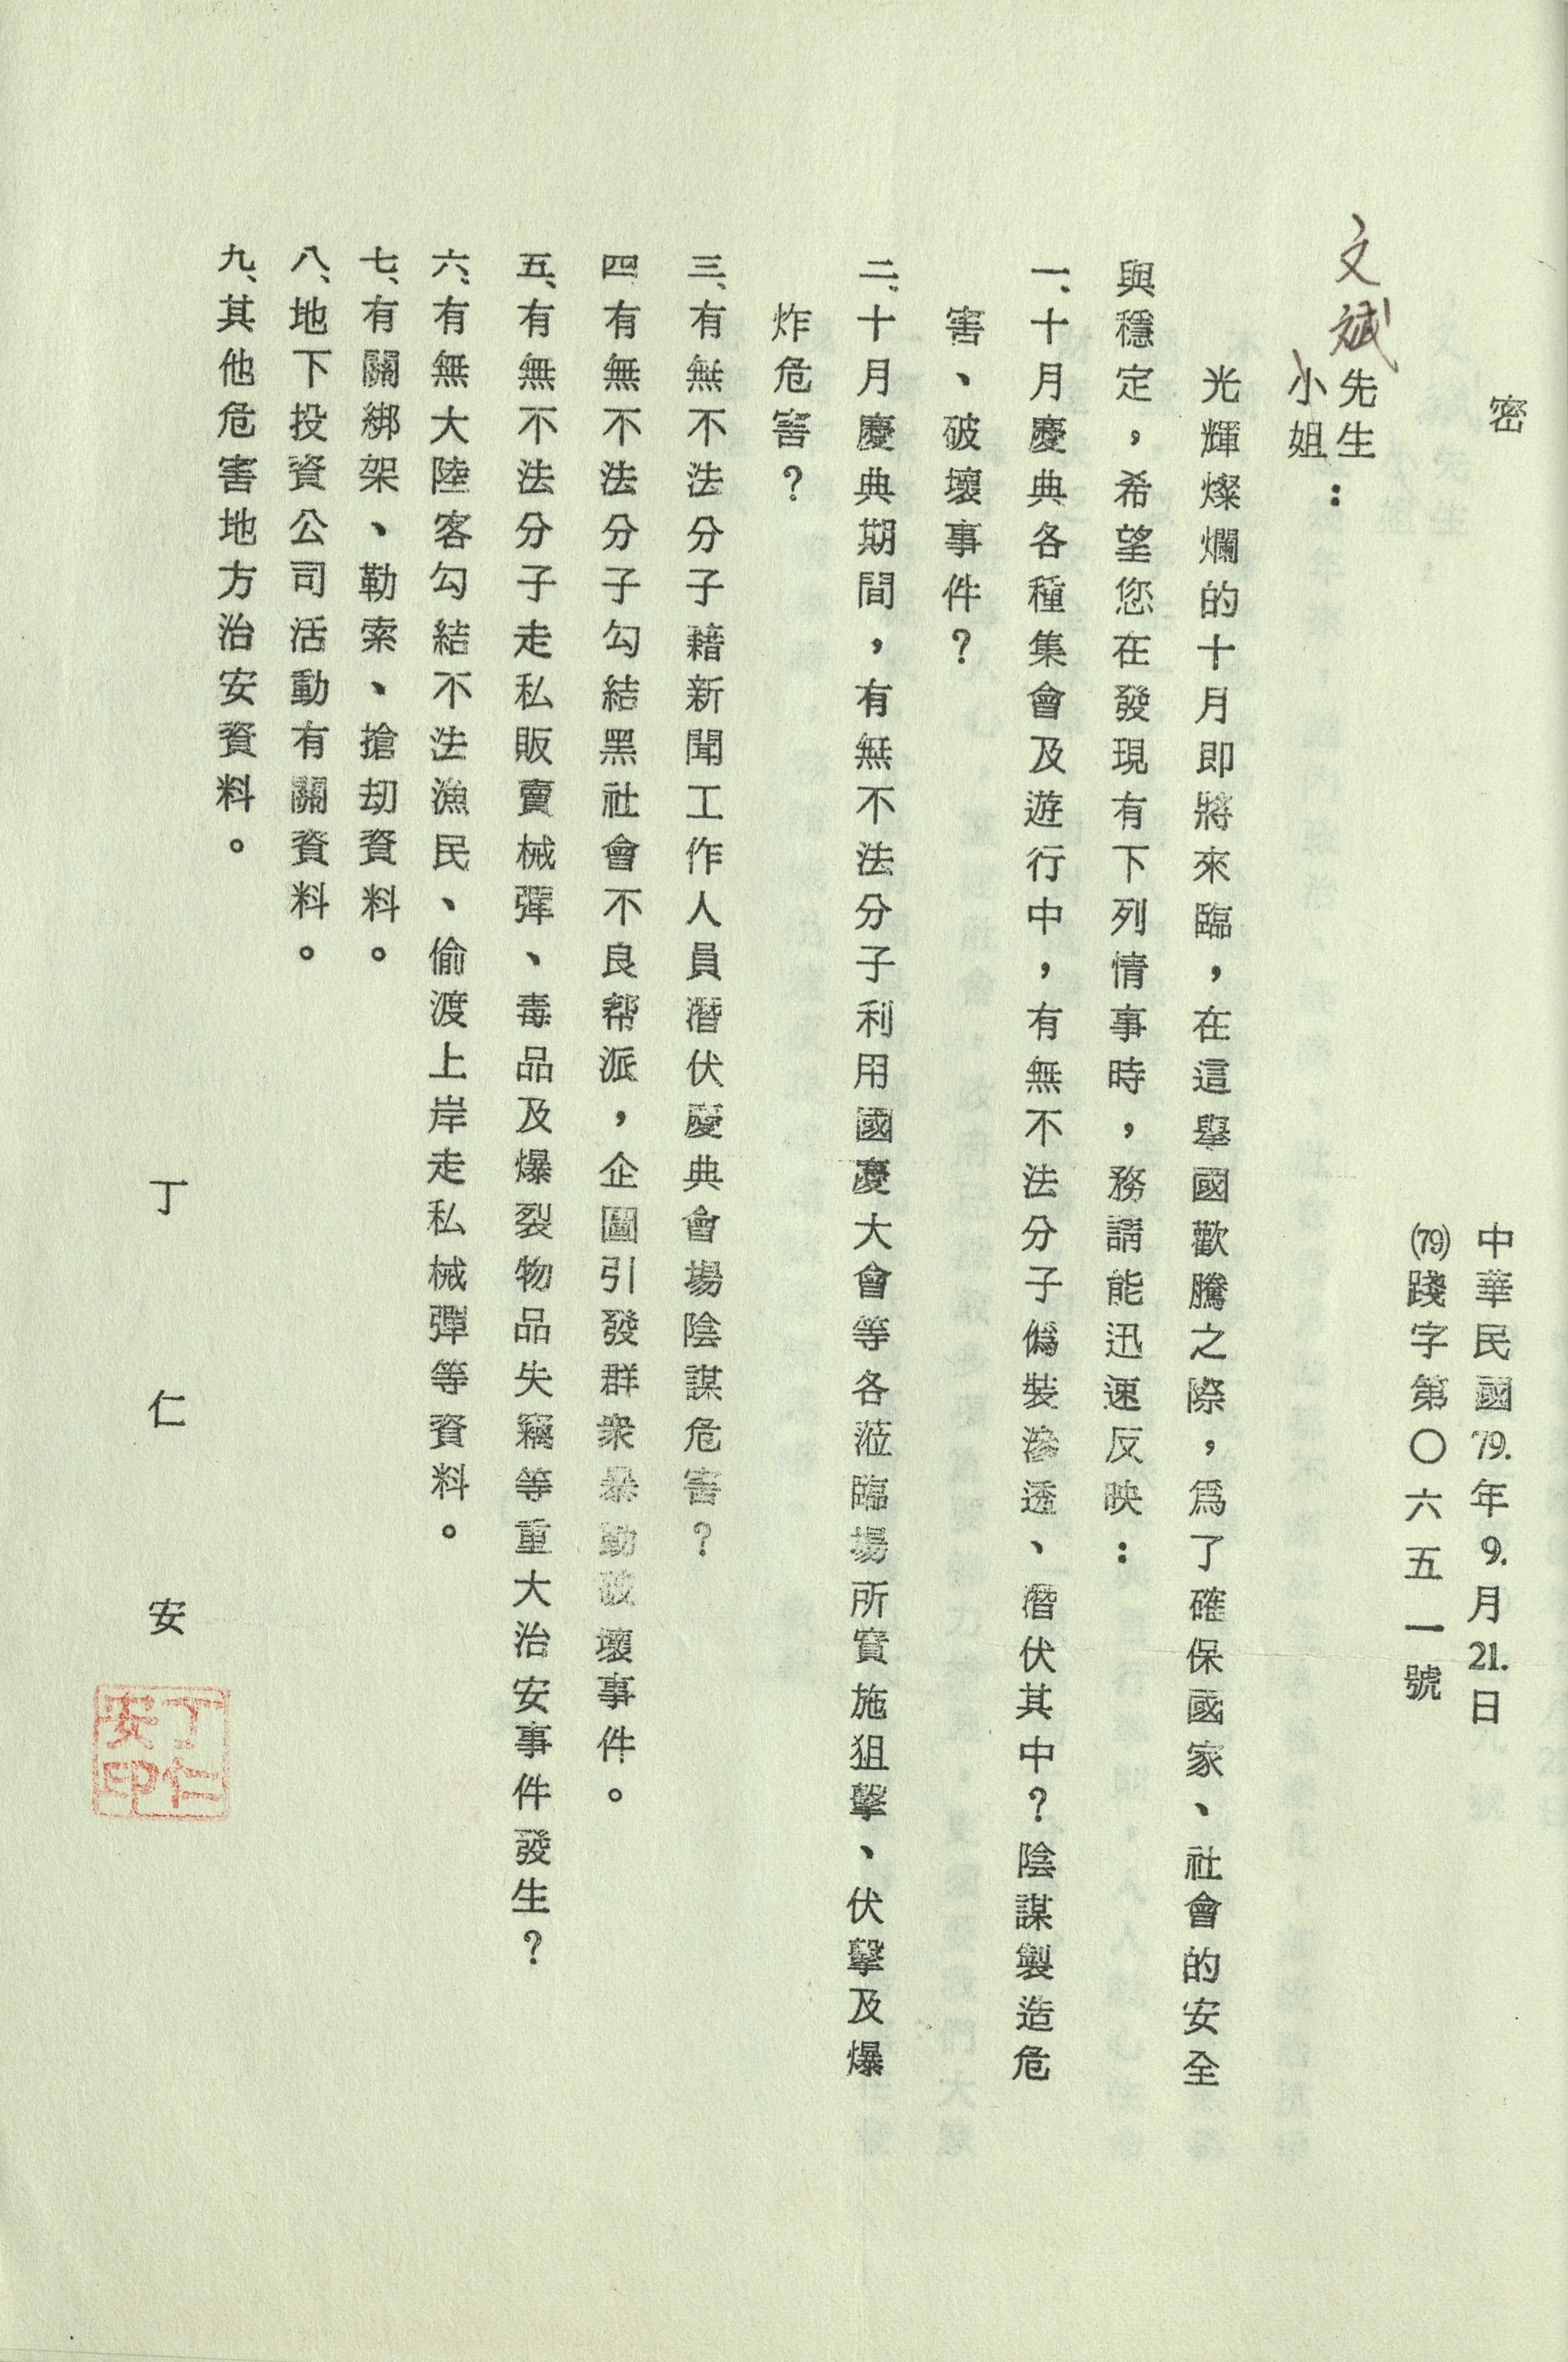 密
中華民國79.年9.月21.日
(79)踐字第〇六五一號
文斌先生
小姐：
光輝燦爛的十月即將來臨，在這舉國歡騰之際，爲了確保國家、社會的安全
與穩定，希望您在發現有下列情事時，務請能迅速反映：
一、十月慶典各種集會及遊行中，有無不法分子僞裝滲透、潛伏其中？陰謀製造危
害、破壞事件？
二、十月慶典期間，有無不法分子利用國慶大會等各蒞臨場所實施狙擊、伏擊及爆
炸危害？
三、有無不法分子藉新聞工作人員潛伏慶典會場陰謀危害？
四、有無不法分子勾結黑社會不良幫派，企圖引發群衆暴動破壞事件。
五、有無不法分子走私販賣械彈、毒品及爆裂物品失竊等重大治安事件發生？
六、有無大陸客勾結不法漁民、偷渡上岸走私械彈等資料。
七、有關綁架、勒索、搶刧資料。
八、地下投資公司活動有關資料。
九、其他危害地方治安資料。
丁仁安
丁仁
安印